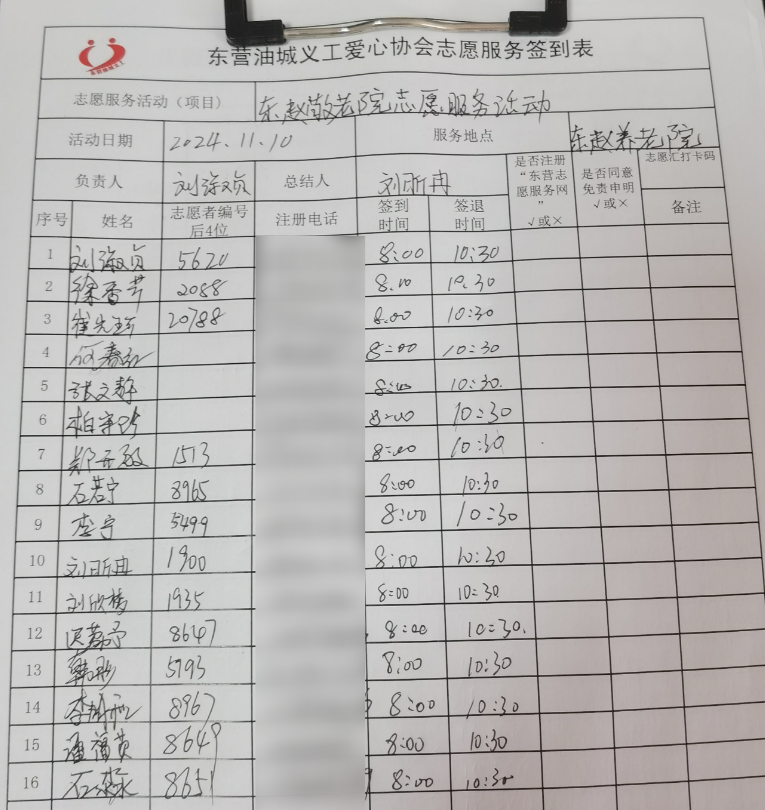 东营油城义工爱心协会志愿服务签到表
志愿服务活动（项目） 东赵敬老院志愿服务活动
活动日期 2024.11.10 服务地点 东赵养老院
负责人 刘淑贞 总结人 刘昕冉 是否注册“东营志愿服务网”√或× 是否同意免责申明√或× 志愿汇打卡码
序号 姓名 志愿者编号后4位 注册电话 签到时间 签退时间 备注
1 刘淑贞 5620 8:00 10:30
2 徐香芹 2088 8:00 10:30
3 崔先珍 20788 8:00 10:30
4 何春红 8:00 10:30
5 张文静 8:00 10:30
6 柏 8:00 10:30
7 郑 1513 8:00 10:30
8 石若宁 8965 8:00 10:30
9 李宁 5499 8:00 10:30
10 刘昕冉 1900 8:00 10:30
11 刘欣 1935 8:00 10:30
12 8647 8:00 10:30
13 韩 5793 8:00 10:30
14 李 8967 8:00 10:30
15 潘福英 8649 8:00 10:30
16 石 8651 8:00 10:30